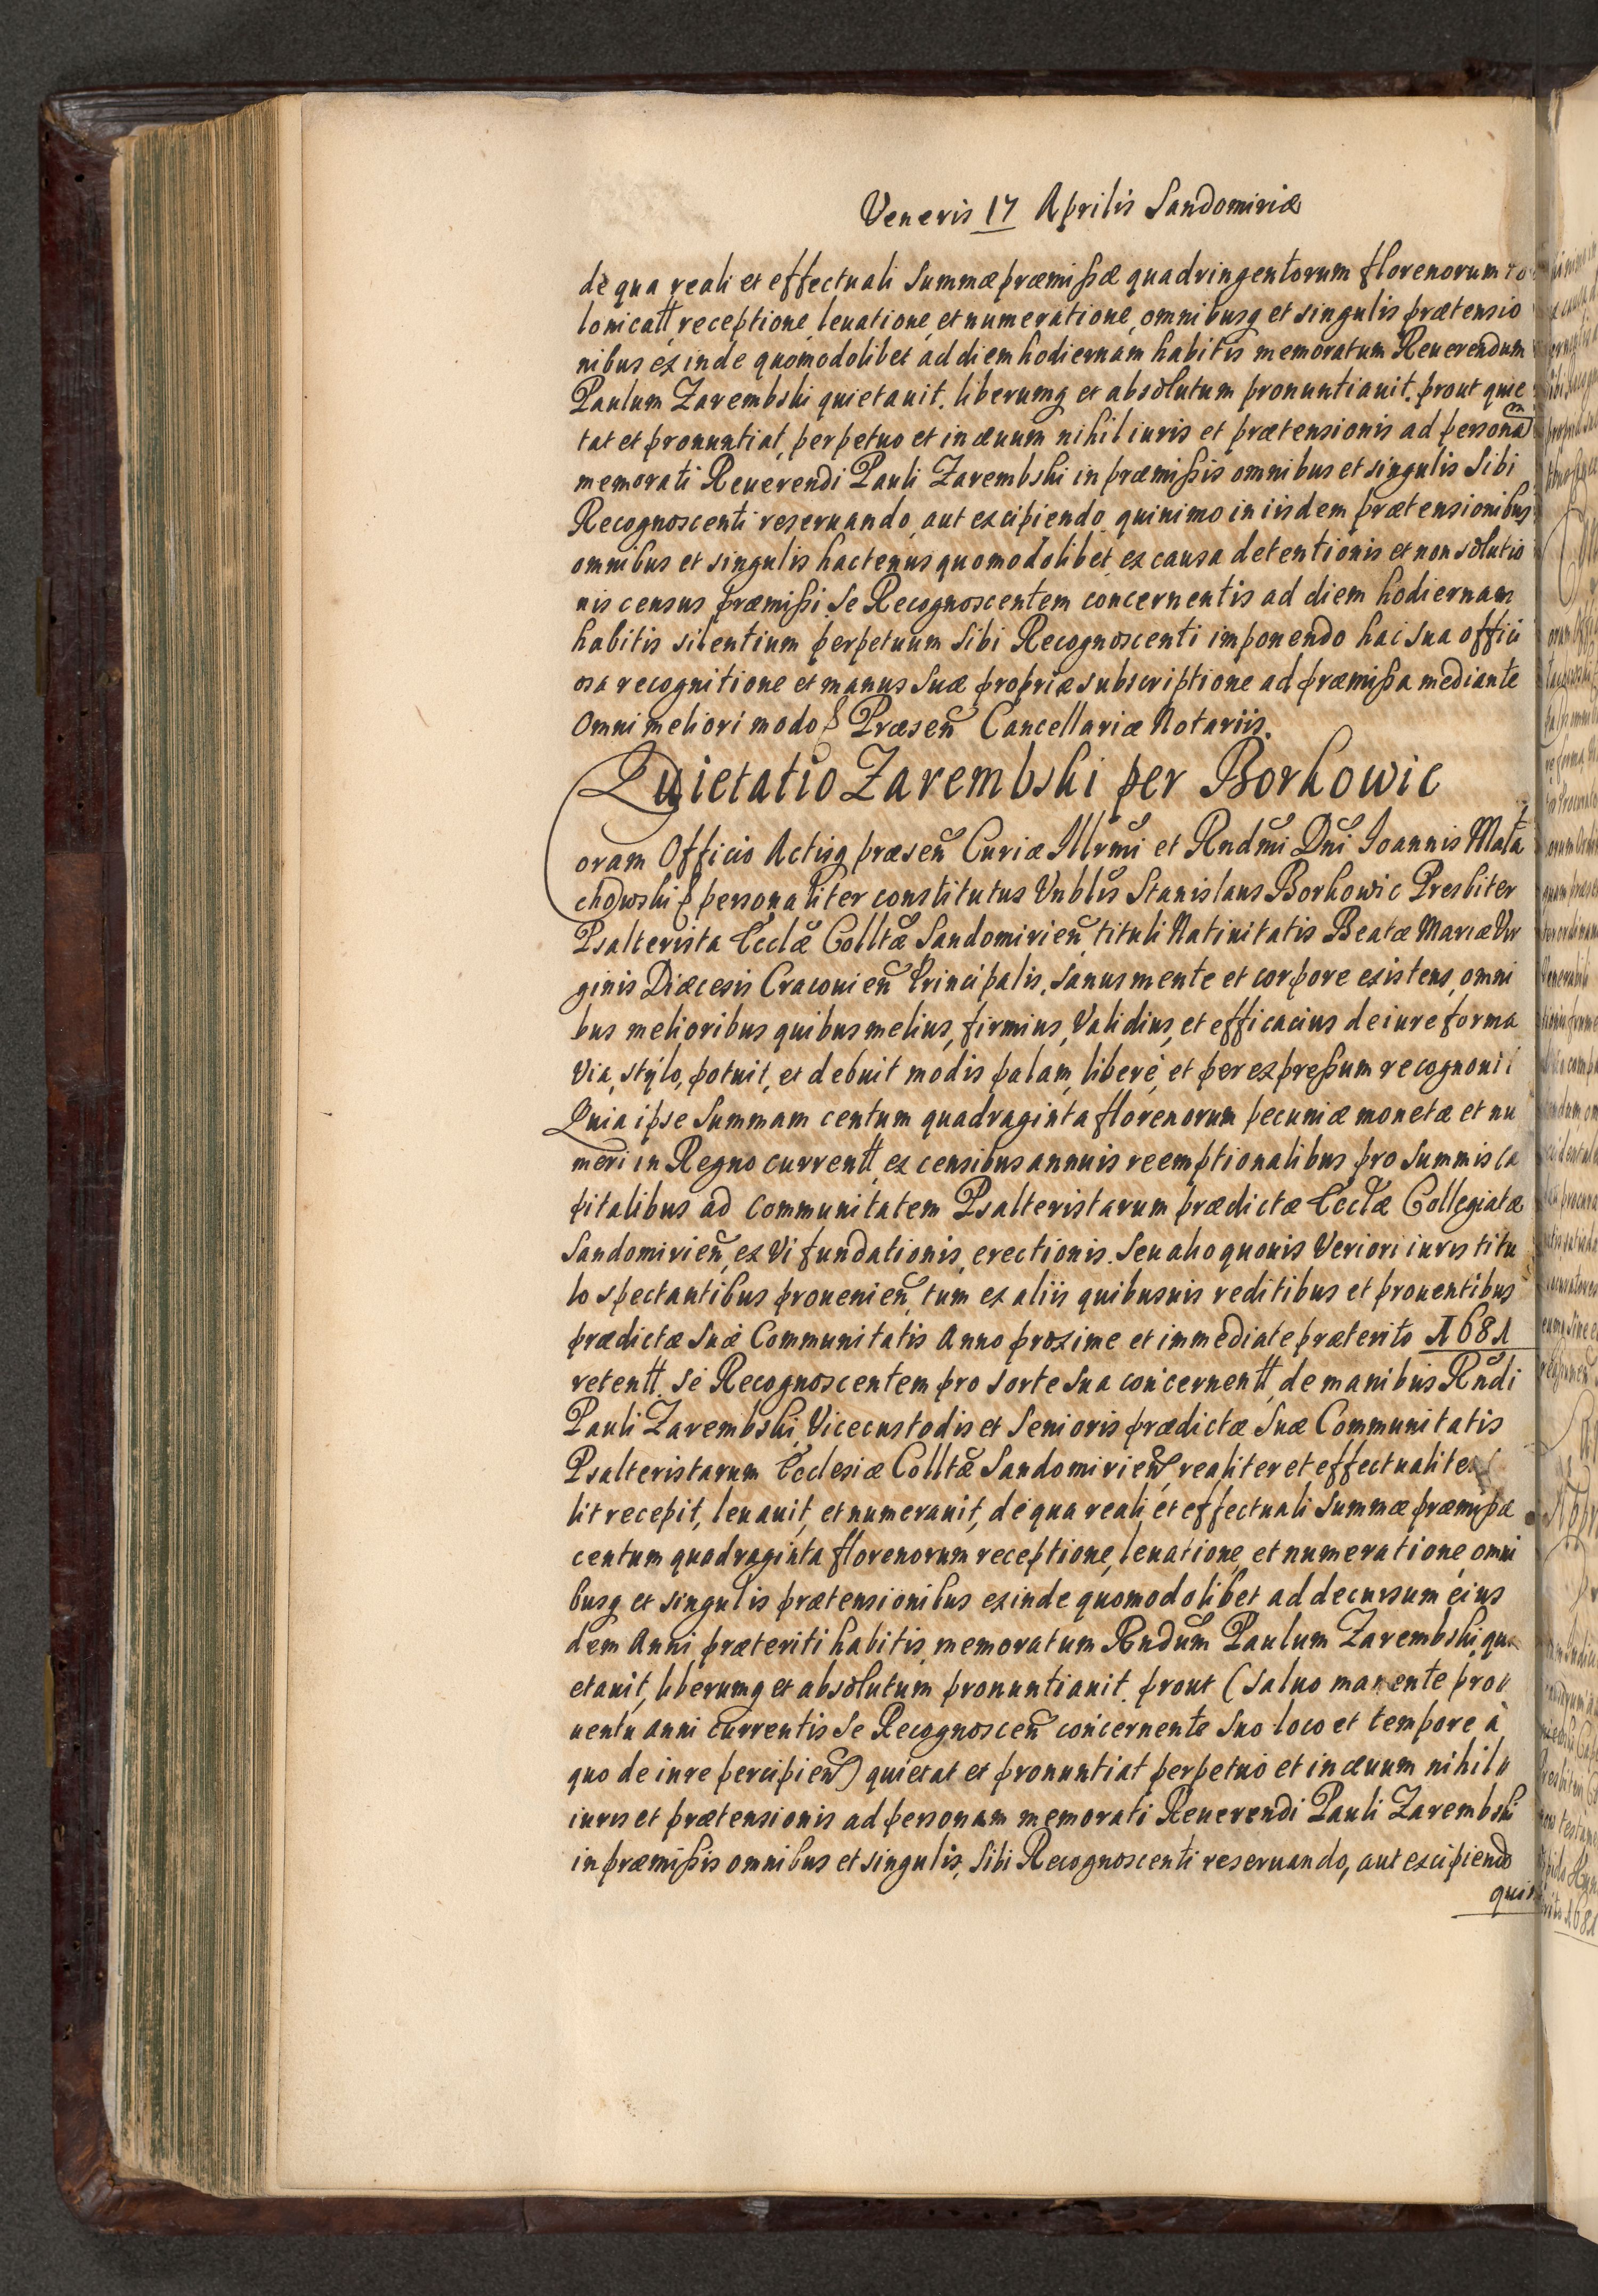 Veneris 17 Aprilis Sandomiriæ
de qua reali et effectuali Summæ præmißæ quadringentorum florenorum
lonicatt, receptione, leuatione, et numeratione, omnibusq et singulis prætensio
nibus exinde quomodolibet ad diem hodiernam habitis memoratum Reuerendum
Paulum Zarembski quietauit. liberumq et absolutum pronuntiauit. prout quie
tat et pronuntiat, perpetuo et in æuum nihil iuris et prætensionis ad personam
memorati Reuerendi Pauli Zarembski in præmißis omnibus et singulis Sibi
Recognoscenti reseruando, aut excipiendo quinimo in iisdem prætensionibus
omnibus et singulis hactenus quomodolibet ex causa detentionis et non solutio
nis census præmißi Se Recognoscentem concernentis ad diem hodiernam
habitis silentium perpetuum Sibi Recognoscenti imponendo hac Sua offici
osa recognitione et manus Suæ propriæ subscriptione ad præmißa mediante
Omni meliori modo Præsen̄ Cancellariæ Notariis.
Quietatio Zarembski per Borkowic
oram Officio Actisq præsen̄ Curiæ Illrm̄i et Rndm̄i Dn̄i Ioannis Mała
chowski personaliter constitutus Vnblīs Stanislaus Borkowic Presbiter
Psalterista Ecclæ Colltæ Sandomirien̄ tituli Natiuitatis Beatæ Mariæ Vir
ginis Diæcesis Cracouien̄ Principalis, Sanus mente et corpore existens, omni
bus melioribus quibus melius, firmius, Validius, et efficacius de iure forma
Via, stylo, potuit, et debuit modis palam, liberé, et per expreßum recognouit
Quia ipse Summam centum quadraginta florenorum pecuniæ monetæ et nu
meri in Regno currentt, ex censibus annuis reemptionalibus pro Summis ca
pitalibus ad Communitatem Psalteristarum prædictæ Ecclæ Collegiatæ
Sandomirien̄, ex Vi fundationis, erectionis. Seu alio quouis Veriori iuris titu
lo spectantibus prouenien̄, tum ex aliis quibusuis reditibus et prouentibus
prædictæ Suæ Communitatis Anno proxime et immediate præterito 1681
retentt. Se Recognoscentem pro sorte Sua concernentt, de manibus Rn̄di
Pauli Zarembski, Vicecustodis et Senioris prædictæ Suæ Communitatis
Psalteristarum Ecclesiæ Colltæ Sandomirien̄, realiter et effectualiter
lit recepit, leuauit, et numerauit, de qua reali et effectuali Summæ præmißæ
centum quadraginta florenorum receptione, leuatione, et numeratione, omni
busq et singulis prætensionibus exinde quomodolibet ad decursum eius
dem Anni præteriti habitis, memoratum Rndūm Paulum Zarembski qui
etauit, liberumq et absolutum pronuntiauit. prout (saluo manente pro
uentu anni currentis Se Recognoscen̄ concernente Suo loco et tempore à
quo de iure percipien̄) quietat et pronuntiat perpetuo et in æuum nihil
iuris et prætensionis ad personam memorati Reuerendi Pauli Zarembski
in præmißis omnibus et singulis, Sibi Recognoscenti reseruando, aut excipiendo